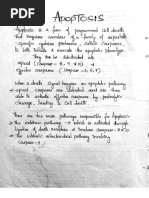 APOPTOSIS
Apoptosis is a form of programmed cell death
that requires members of a family of aspartate
specific cysteine proteases, called Caspases,
to both initiate & execute the apoptotic phenotype.
They can be subdivided into
apical (Caspase - 8, 9 & 10) and
effector caspases (Caspase - 3, 6, 7).
apical caspases are activated and are then
able to activate effector caspases by proteolytic
cleavage, leading to Cell death
There are two main pathways responsible for Apoptosis
The extrinsic pathway → which is activated through
ligation of death receptors &
The intrinsic pathway → involving
Caspase - 9